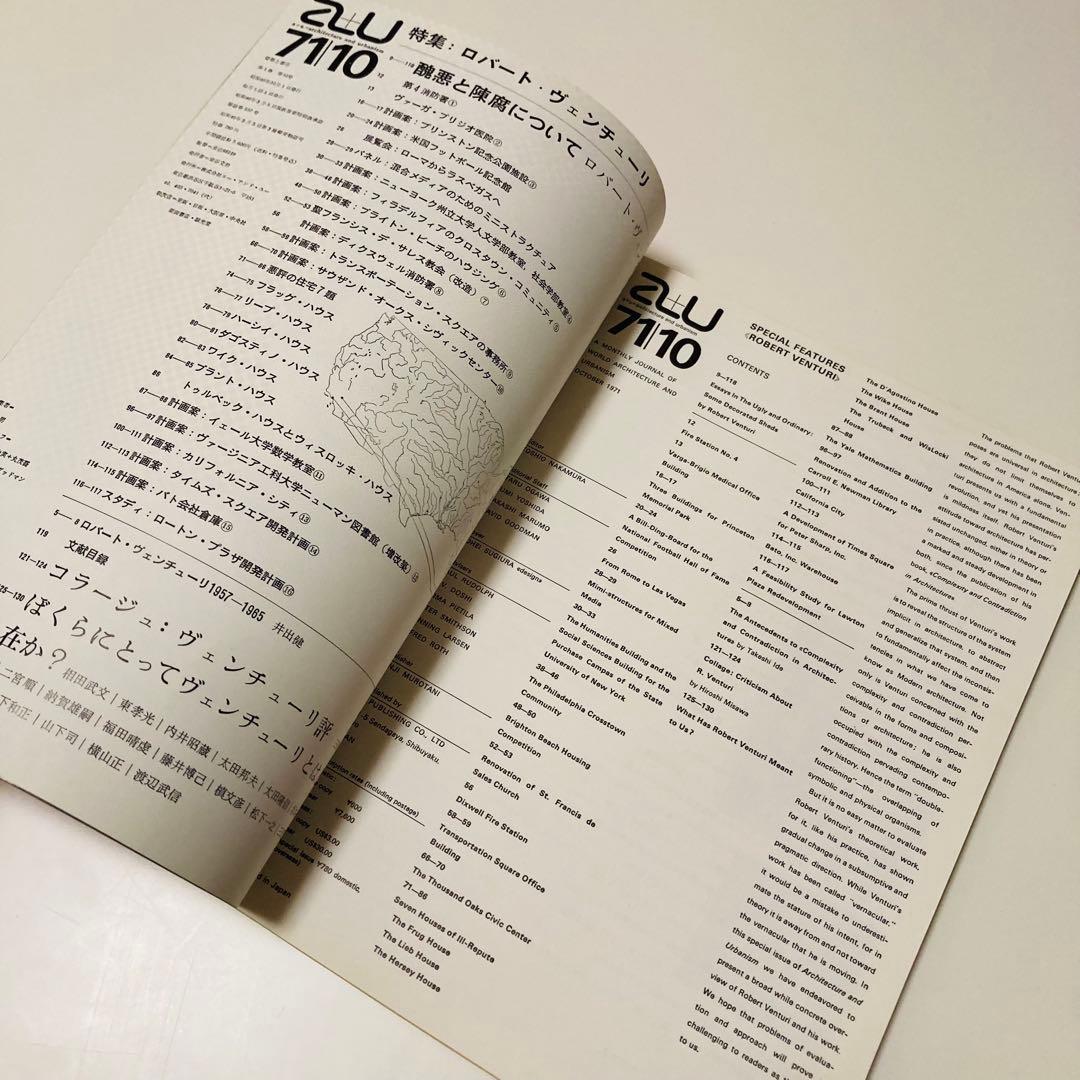 a+u
a+u=architecture and urbanism
71|10
特集：ロバート・ヴェンチューリ
9—118 醜悪と陳腐について ロバート・ヴ
12 第4消防署①
13 ヴァーガ・ブリジオ医院②
16—17 計画案：プリンストン記念公園施設③
20—24 計画案：米国フットボール記念館
26 展覧会：ローマからラスベガスへ
28—29 パネル：混合メディアのためのミニストラクチュア
30—33 計画案：ニューヨーク州立大学人文学部教室，社会学部教室④
38—48 計画案：フィラデルフィアのクロスタウン・コミュニティ⑤
48—50 計画案：ブライトン・ビーチのハウジング⑥
52—53 聖フランシス・デ・サレス教会（改造）⑦
56 計画案：ディクスウェル消防署⑧
58—59 計画案：トランスポーテーション・スクエアの事務所⑨
66—70 計画案：サウザンド・オークス・シヴィックセンター⑩
71—86 悪評の住宅7題
74—75 フラッグ・ハウス
76—77 リーブ・ハウス
78—79 ハーシイ・ハウス
80—81 ダゴスティノ・ハウス
82—83 ワイク・ハウス
84—85 ブラント・ハウス
86 トゥルベック・ハウスとウィスロッキ・ハウス
87—88 計画案：イェール大学数学教室⑪
96—97 計画案：ヴァージニア工科大学ニューマン図書館（増改築）⑫
100—111 計画案：カリフォルニア・シティ⑬
112—113 計画案：タイムズ・スクエア開発計画⑭
114—115 計画案：バト会社倉庫⑮
116—111 スタディ：ロートン・プラザ開発計画⑯
5—8 ロバート・ヴェンチューリ1957—1965 井出健
119 文献目録
121—124 コラージュ：ヴェンチューリ説
125—130 ぼくらにとってヴェンチューリとは
在か？
相田武文|東孝光|内井昭蔵|太田邦夫|太田隆信
二宮順|納賀雄嗣|福田晴虔|藤井博己|槙文彦|松下一之
下和正|山下司|横山正|渡辺武信
a+u
a+u=architecture and urbanism
71|10
A MONTHLY JOURNAL OF
WORLD ARCHITECTURE AND
URBANISM
OCTOBER 1971
OSHIO NAKAMURA
ditorial Staff
ARU OGAWA
UMI YOSHIDA
AKASHI MARUMO
AVID GOODMAN
HEI SUGIURA «design»
AUL RUDOLPH
V. DOSHI
MA PIETILA
TER SMITHSON
NNING LARSEN
FRED ROTH
NJI MUROTANI
PUBLISHING CO., LTD
-5 Sendagaya, Shibuyaku.
ription rates (including postage)
copy ¥600
¥7,600
copy US$3.00
US$30.00
special issue ¥780 domestic.
d in Japan
SPECIAL FEATURES
《ROBERT VENTURI》
CONTENTS
9—118
Essays in The Ugly and Ordinary:
Some Decorated Sheds
by Robert Venturi
12
Fire Station No. 4
13
Varga-Brigio Medical Office
Building
16—17
Three Buildings for Princeton
Memorial Park
20—24
A Bill-Ding-Board for the
National Football Hall of Fame
Competition
26
From Rome to Las Vegas
28
Mini-structures for Mixed
Media
30—33
The Humanities Building and the
Social Sciences Building for the
Purchase Campas of the State
University of New York
38—46
The Philadelphia Crosstown
Community
48—50
Brighton Beach Housing
Competition
52—53
Renovation of St. Francis de
Sales Church
56
Dixwell Fire Station
58—59
Transportation Square Office
Building
66—70
The Thousand Oaks Civic Center
71—86
Seven Houses of Ill-Repute
The Frug House
The Lieb House
The Hersey House
The D'Agostino House
The Wike House
The Brant House
The Trubeck and Wislocki
87—88
The Yale Mathematics Building
96—97
Renovation and Addition to the
Carroll E. Newman Library
100—111
California City
112—113
A Development of Times Square
for Peter Sharp, Inc.
114—115
Bato, Inc. Warehouse
116—117
A Feasibility Study for Lawton
Plaza Redevelopment
5—8
The Antecedents to «Complexity
and Contradiction in Architec-
ture» by Takashi Ide
121—124
Collage; Criticism About
R. Venturi
by Hiroshi Misawa
125—130
What Has Robert Venturi Meant
to Us?
The problems that Robert Ven
poses are universal in architecture
they do not limit themselves to
architecture in America alone. Ven-
turi presents us with a fundamental
revolution, and yet his presentation
is mildness itself. Robert Venturi's
attitude toward architecture has per-
sisted unchanged, either in theory or
in practice, although there has been
a marked and steady development in
both, since the publication of his
book, «Complexity and Contradiction
in Architecture».
The prime thrust of Venturi's work
is to reveal the structure of the system
implicit in architecture, to abstract
and generalize that system, and then
to fundamentally affect the inconsis-
tencies in what we have come to
know as Modern architecture. Not
only is Venturi concerned with the
complexity and contradiction per-
ceivable in the forms and composi-
tions of architecture; he is also
occupied with the complexity and
contradiction pervading contempo-
rary history. Hence the term "double-
functioning"—the overlapping of
symbolic and physical organisms.
But it is no easy matter to evaluate
Robert Venturi's theoretical work,
for it, like his practice, has shown
gradual change in a subsumptive and
pragmatic direction. While Venturi's
work has been called "vernacular,"
it would be a mistake to underesti-
mate the stature of his intent, for in
theory it is away from and not toward
the vernacular that he is moving. In
this special issue of Architecture and
Urbanism we have endeavored to
present a broad while concrete over-
view of Robert Venturi and his work.
We hope that problems of evalua-
tion and approach will prove
challenging to readers as
to us.